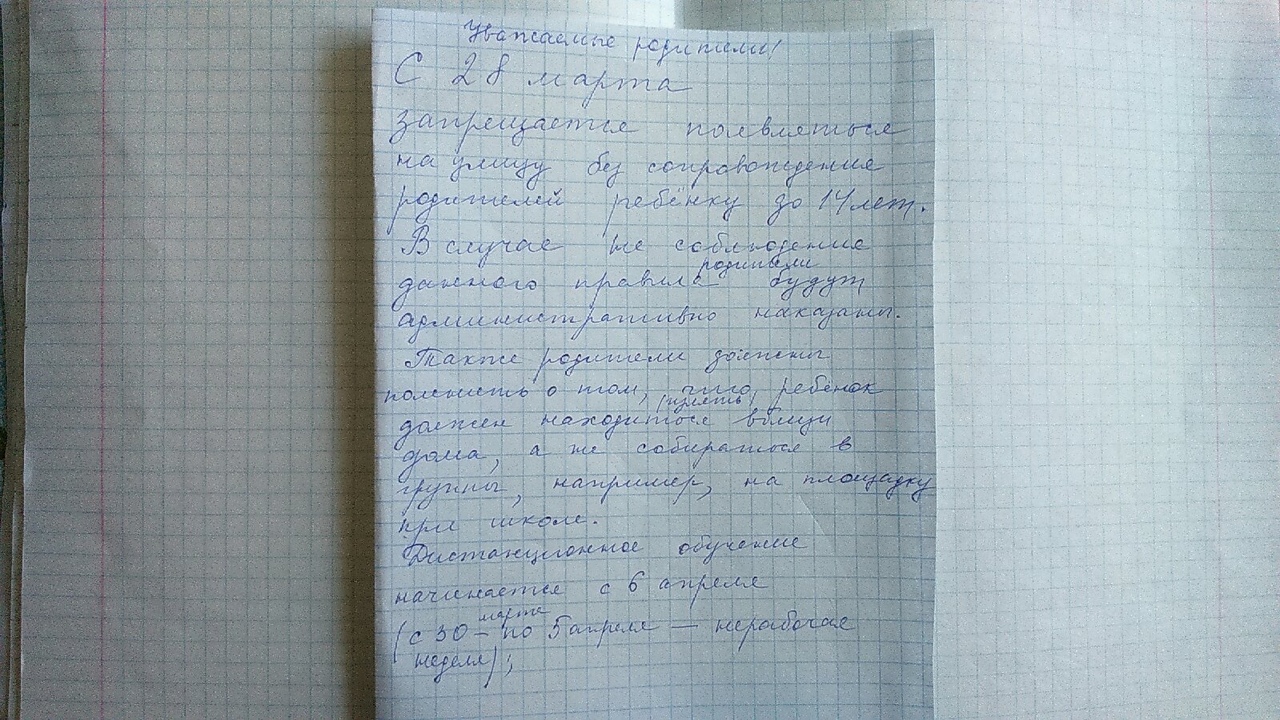 Уважаемые родители!
С 28 марта
запрещается появляться
на улицу без сопровождения
родителей ребёнку до 14 лет.
В случае не соблюдение
родители
данного правила будут
административно наказаны.
Также родители должны
помнить о том, что, ребёнок
гулять
должен находиться вблизи
дома, а не собираться в
группы, например, на площадку
при школе.
Дистанционное обучение
начинается с 6 апреля
марта
(с 30 – по 5 апреля — нерабочая
неделя);